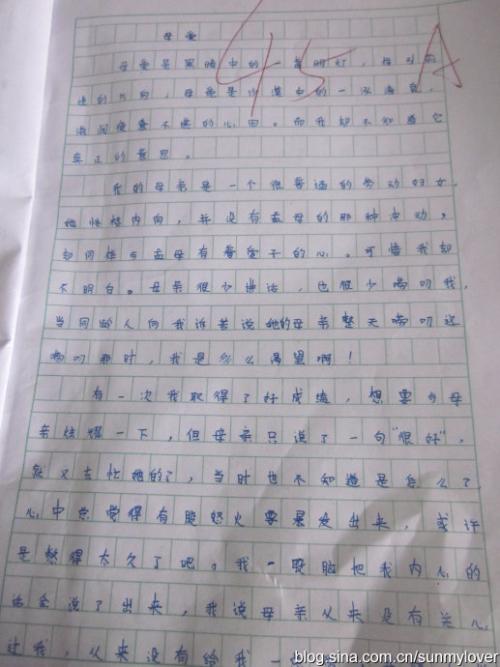 母爱
45 A
母爱是黑暗中的一盏明灯，指引前
进的方向，母爱是沙漠中的一泓清泉，
滋润疲惫不堪的心田。而我却不知道它
真正的意思。
我的母亲是一个很普通的劳动妇女，
她性格内向，并没有孟母的那种主动，
却同样与孟母有着爱子的心。可惜我却
不明白。母亲很少说话，也很少唠叨我，
当同龄人向我诉苦说她的母亲整天唠叨这
唠叨那时，我是多么渴望啊！
有一次我取得了好成绩，想要与母
亲炫耀一下，但母亲只说了一句“很好”，
就又去忙她的了，当时也不知道是怎么了
心中总觉得有股怒火要暴发出来，或许
是憋得太久了吧。我一股脑把我内心的
话全说了出来，我说母亲从来没有关心
过我，从来没有给我一
blog.sina.com.cn/sunmylover